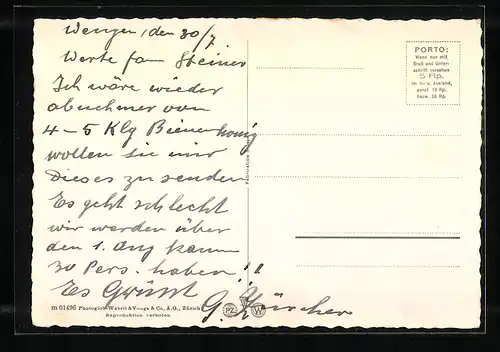 Wengen, den 30/7
Werte fam Steiner
Ich wäre wieder
abnehmer von
4-5 Klg Bienenhonig
wollen sie mir
Dieses zu senden
Es geht schlecht
wir werden über
den 1. Aug kaum
30 Pers. haben!!
Es Grüsst
G. Zürcher
m 01496 Photoglob-Wehrli & Vouga & Co., A.G., Zürich
Reproduktion verboten
PZ W W
PORTO:
Wenn nur mit
Gruß und Unter-
schrift versehen
5 Rp.
für In- u. Ausland,
sonst 10 Rp.
bezw. 20 Rp.